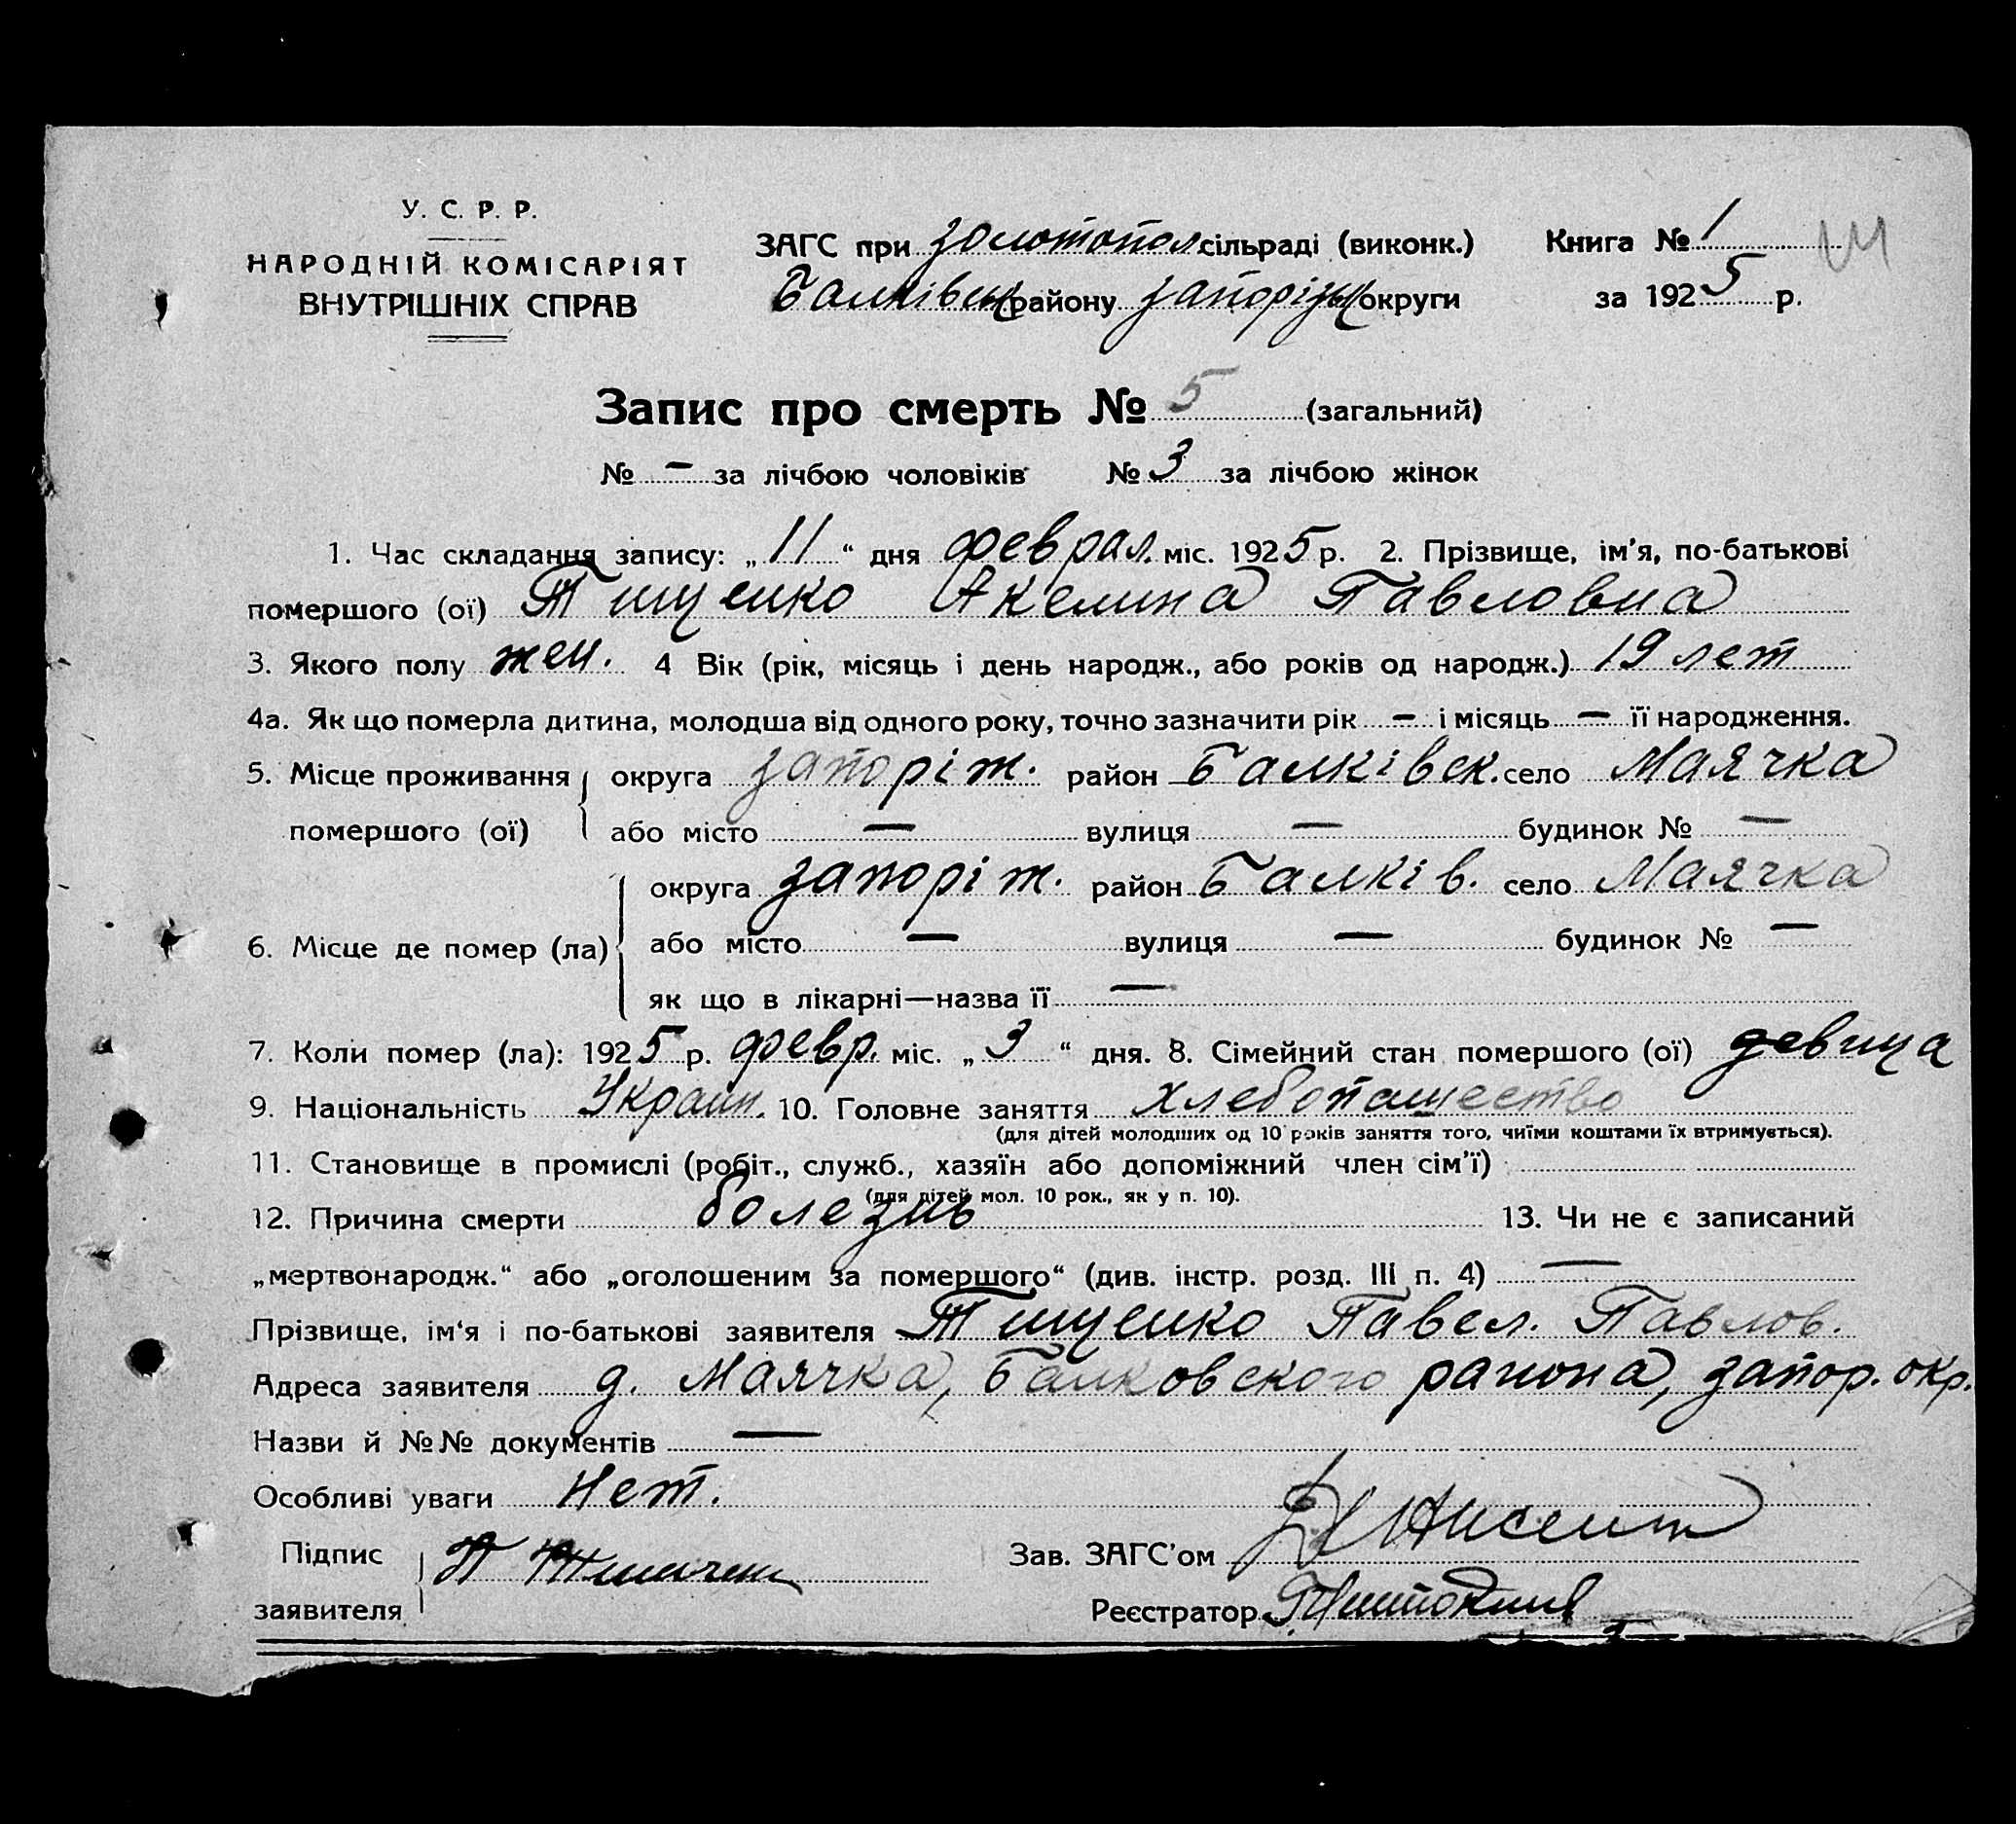 У. С. Р. Р.
НАРОДНІЙ КОМІСАРІЯТ
ВНУТРІШНІХ СПРАВ
ЗАГС при золотопол сільраді (виконк.)
Балківськ району запорізьк округи
Книга № 1
за 1925 р.
Запис про смерть № 5 (загальний)
№ — за лічбою чоловіків № 3 за лічбою жінок
1. Час складання запису: „11“ дня феврал. міс. 1925 р. 2. Прізвище, ім'я, по-батькові
помершого (ої) Тищенко Акелина Павловна
3. Якого полу жен. 4 Вік (рік, місяць і день народж., або років од народж.) 19 лет
4а. Як що померла дитина, молодша від одного року, точно зазначити рік — і місяць — її народження.
5. Місце проживання округа запоріж. район Балківск. село Маячка
помершого (ої) або місто — вулиця — будинок № —
округа запоріж. район Балків. село Маячка
6. Місце де помер (ла) або місто — вулиця — будинок № —
як що в лікарні—назва її —
7. Коли помер (ла): 1925 р. февр. міс. „3“ дня. 8. Сімейний стан помершого (ої) девица
9. Національність Украин. 10. Головне заняття хлебопашество
(для дітей молодших од 10 років заняття того, чиїми коштами їх втримується).
11. Становище в промислі (робіт., служб., хазяїн або допоміжний член сім'ї)
(для дітей мол. 10 рок., як у п. 10).
12. Причина смерти болезнь 13. Чи не є записаний
„мертвонародж.“ або „оголошеним за помершого“ (див. інстр. розд. III п. 4) —
Прізвище, ім'я і по-батькові заявителя Тищенко Павел. Павлов.
Адреса заявителя д. Маячка, Балковского района, запор. окр.
Назви й №№ документів —
Особливі уваги Нет.
Підпис
заявителя
Зав. ЗАГС'ом
Реєстратор